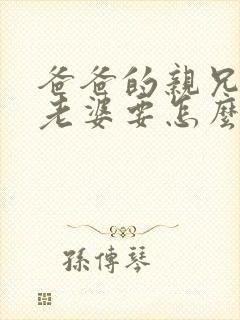 爸爸的親兄
老婆要怎麼
孫傳琴